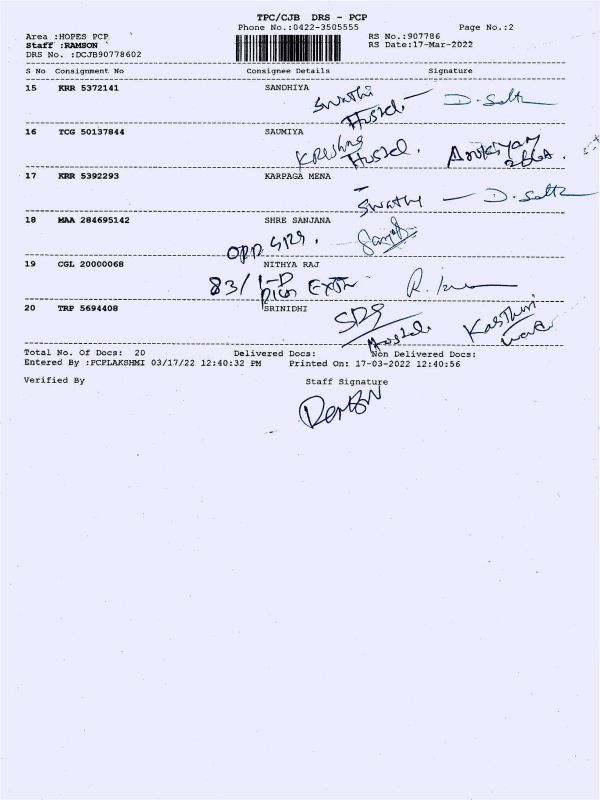 TPC/CJB DRS - PCP
Phone No.:0422-3505555 Page No.:2
Area :HOPES PCP RS No.:907786
Staff :RAMSON RS Date:17-Mar-2022
DRS No. :DCJB90778602
S No Consignment No Consignee Details Signature
15 KRR 5372141 SANDHIYA
Swathi Hostel D. Selt
16 TCG 50137844 SAUMIYA
Krishna Hostel. Arokiyam
17 KRR 5392293 KARPAGA MENA
Swathy D. Selt
18 MAA 284695142 SHRE SANJANA
OPP SRS.
19 CGL 20000068 NITHYA RAJ
83/ 1-D Extn
20 TRP 5694408 SRINIDHI
SDS Hostel Kasthuri
Total No. Of Docs: 20 Delivered Docs: Non Delivered Docs:
Entered By :PCPLAKSHMI 03/17/22 12:40:32 PM Printed On: 17-03-2022 12:40:56
Verified By Staff Signature